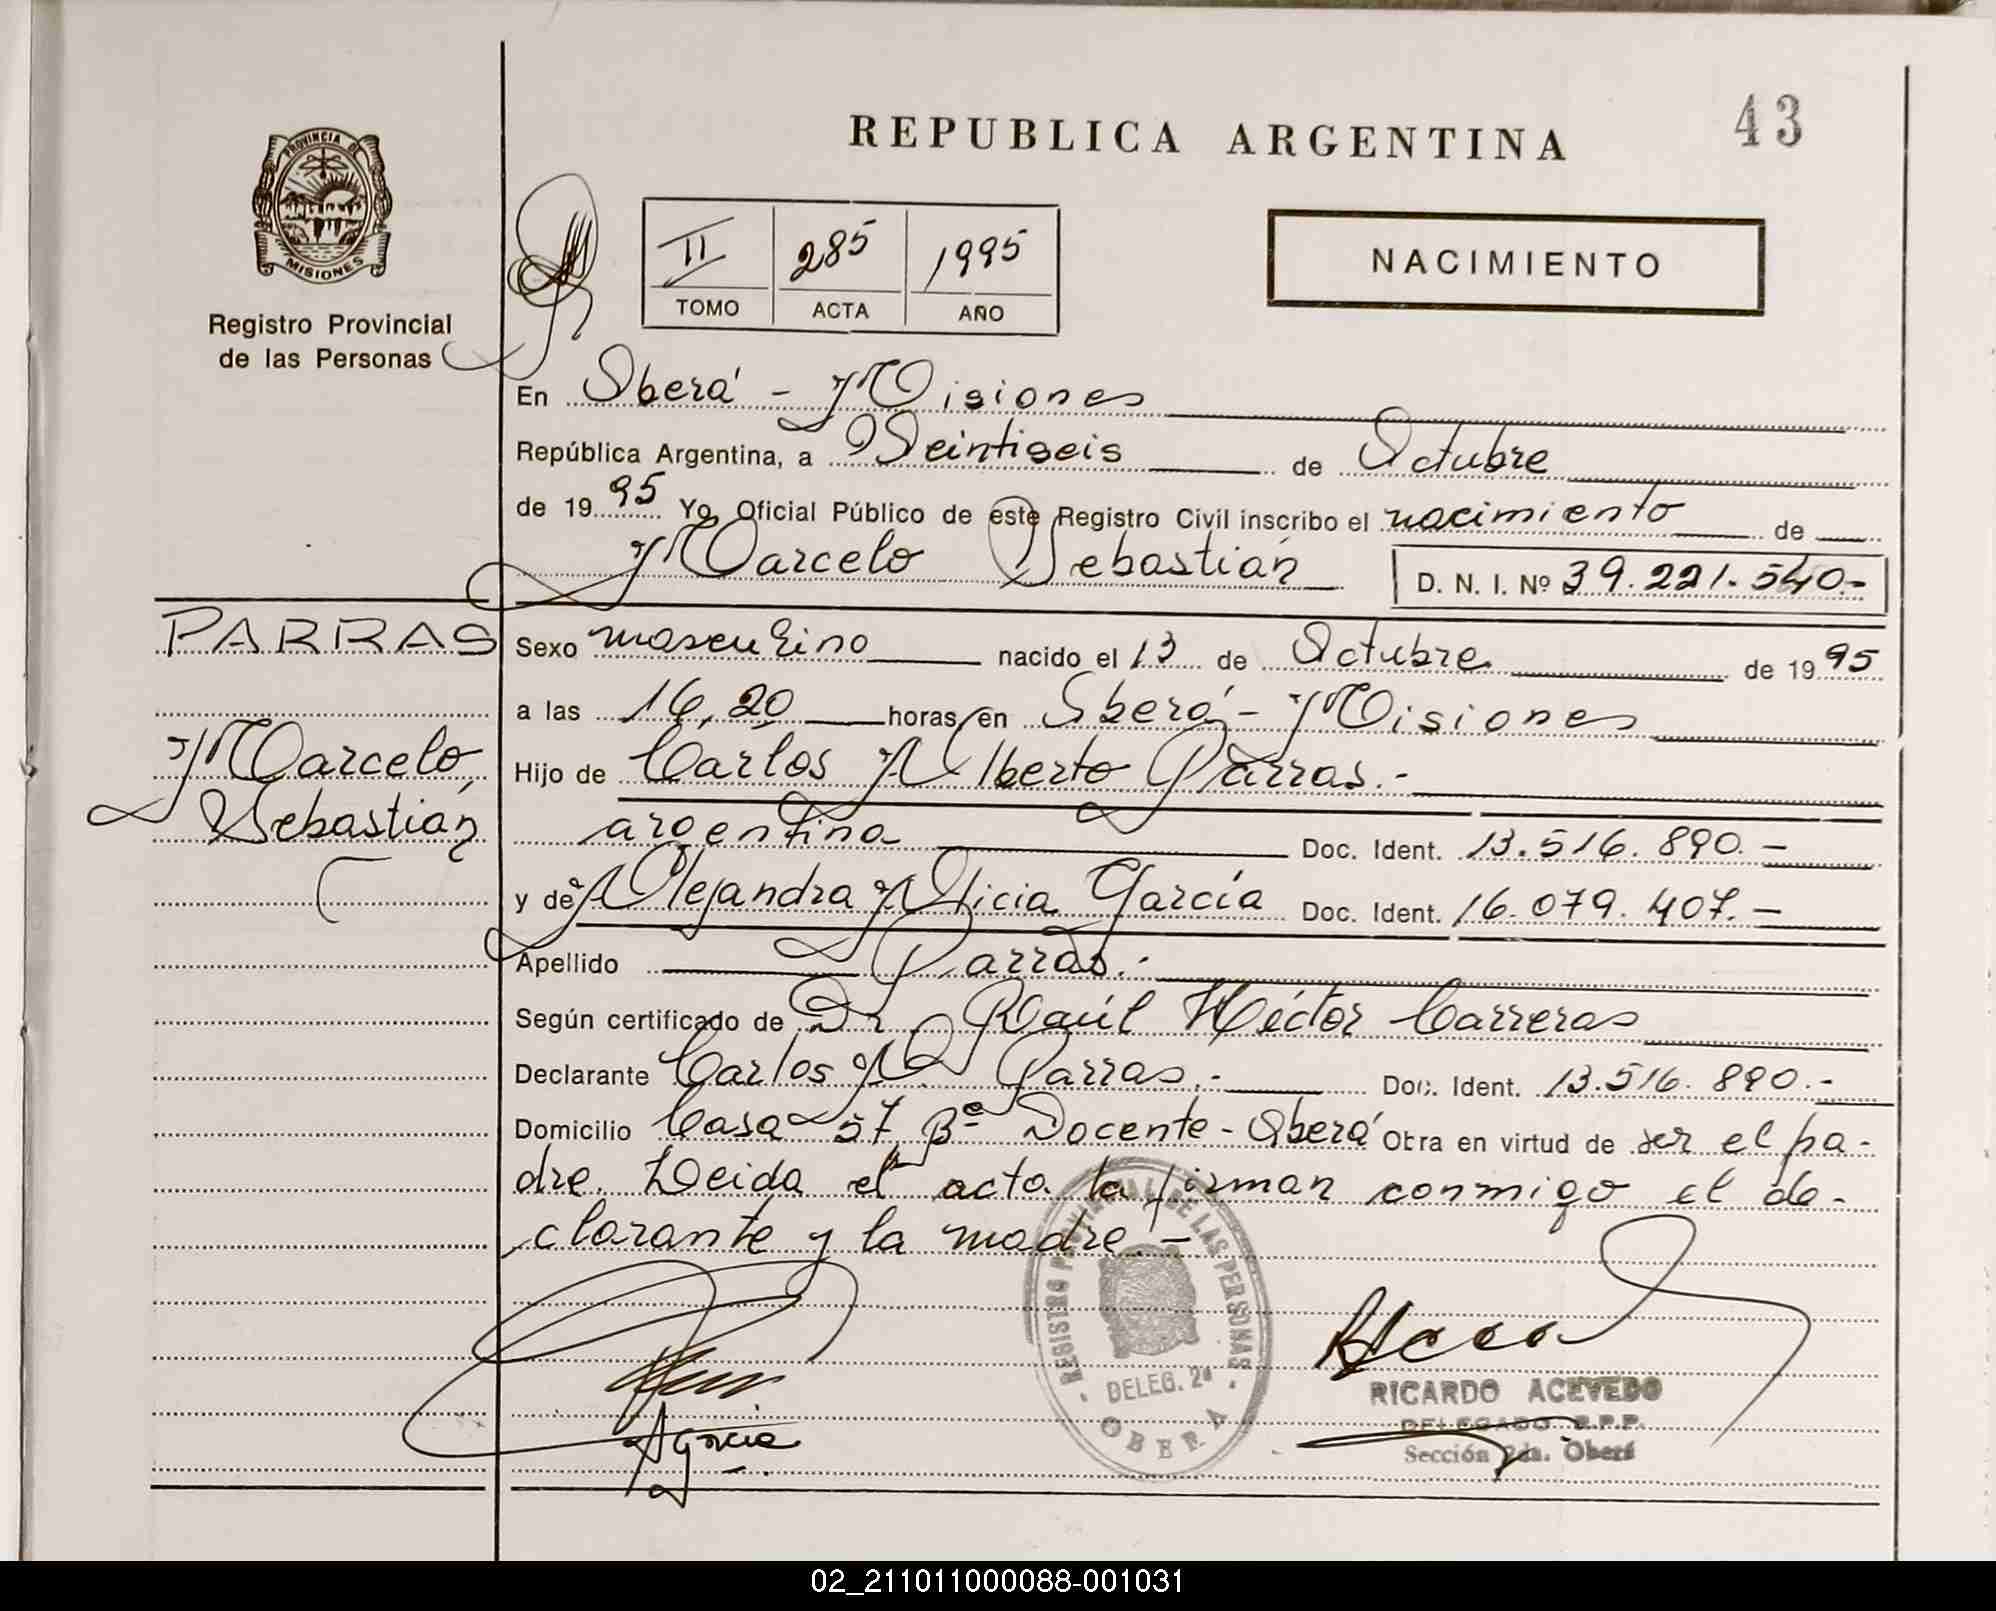 REPUBLICA ARGENTINA
43
PROVINCIA DE
MISIONES
Registro Provincial
de las Personas
II 285 1995
TOMO ACTA AÑO
NACIMIENTO
En Oberá - Misiones
República Argentina, a Veintiseis de Octubre
de 1995 Yo, Oficial Público de este Registro Civil inscribo el nacimiento de
Marcelo Sebastián D. N. I. Nº 39.221.540.-
PARRAS
Marcelo
Sebastián
Sexo masculino nacido el 13 de Octubre de 1995
a las 16,20 horas, en Oberá - Misiones
Hijo de Carlos Alberto Parras.-
argentina Doc. Ident. 13.516.890.-
y de Alejandra Alicia García Doc. Ident. 16.079.407.-
Apellido Parras.-
Según certificado de Dr Raúl Héctor Carreras
Declarante Carlos A. Parras.- Doc. Ident. 13.516.890.-
Domicilio Casa 57 Bº Docente - Oberá Obra en virtud de ser el pa-
dre. Leida el acta la firman conmigo el de-
clarante y la madre.-
REGISTRO PROVINCIAL DE LAS PERSONAS
DELEG. 2ª
OBERA
AGarcia
RICARDO ACEVEDO
DELEGADO R.P.P.
Sección 2da. Oberá
02_211011000088-001031